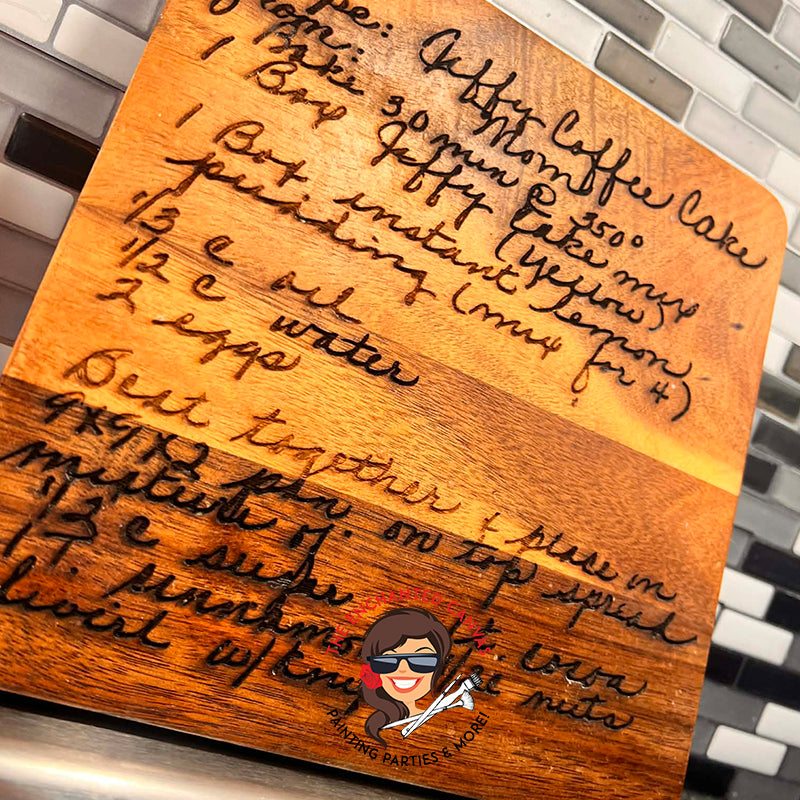 pe: Jeffy Coffee Cake
From: Mom
Bake 30 min @ 350°
1 Box Jeffy Cake mix (yellow)
1 Box instant lemon pudding (mix for 4)
1/3 c oil
1/2 c water
2 eggs
Beat together + place in
9x9x2 pan on top spread
mixture of:
1/2 c
1 T. cocoa
nuts
w/
THE ENCHANTED CANVAS
PAINTING PARTIES & MORE!